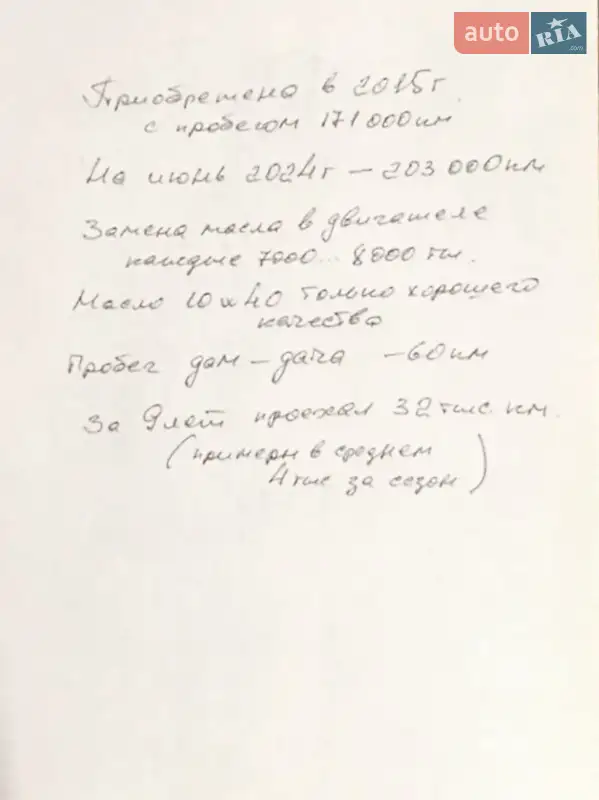 auto RIA .com
Приобретена в 2015г.
с пробегом 171000км
На июнь 2024г – 203 000км
Замена масла в двигателе
каждые 7000... 8000 тк.
Масло 10w40 только хорошего
качества
Пробег дом – дача – 60км
За 9лет проехал 32 тыс. км.
(примерн в среднем
4тыс за сезон)